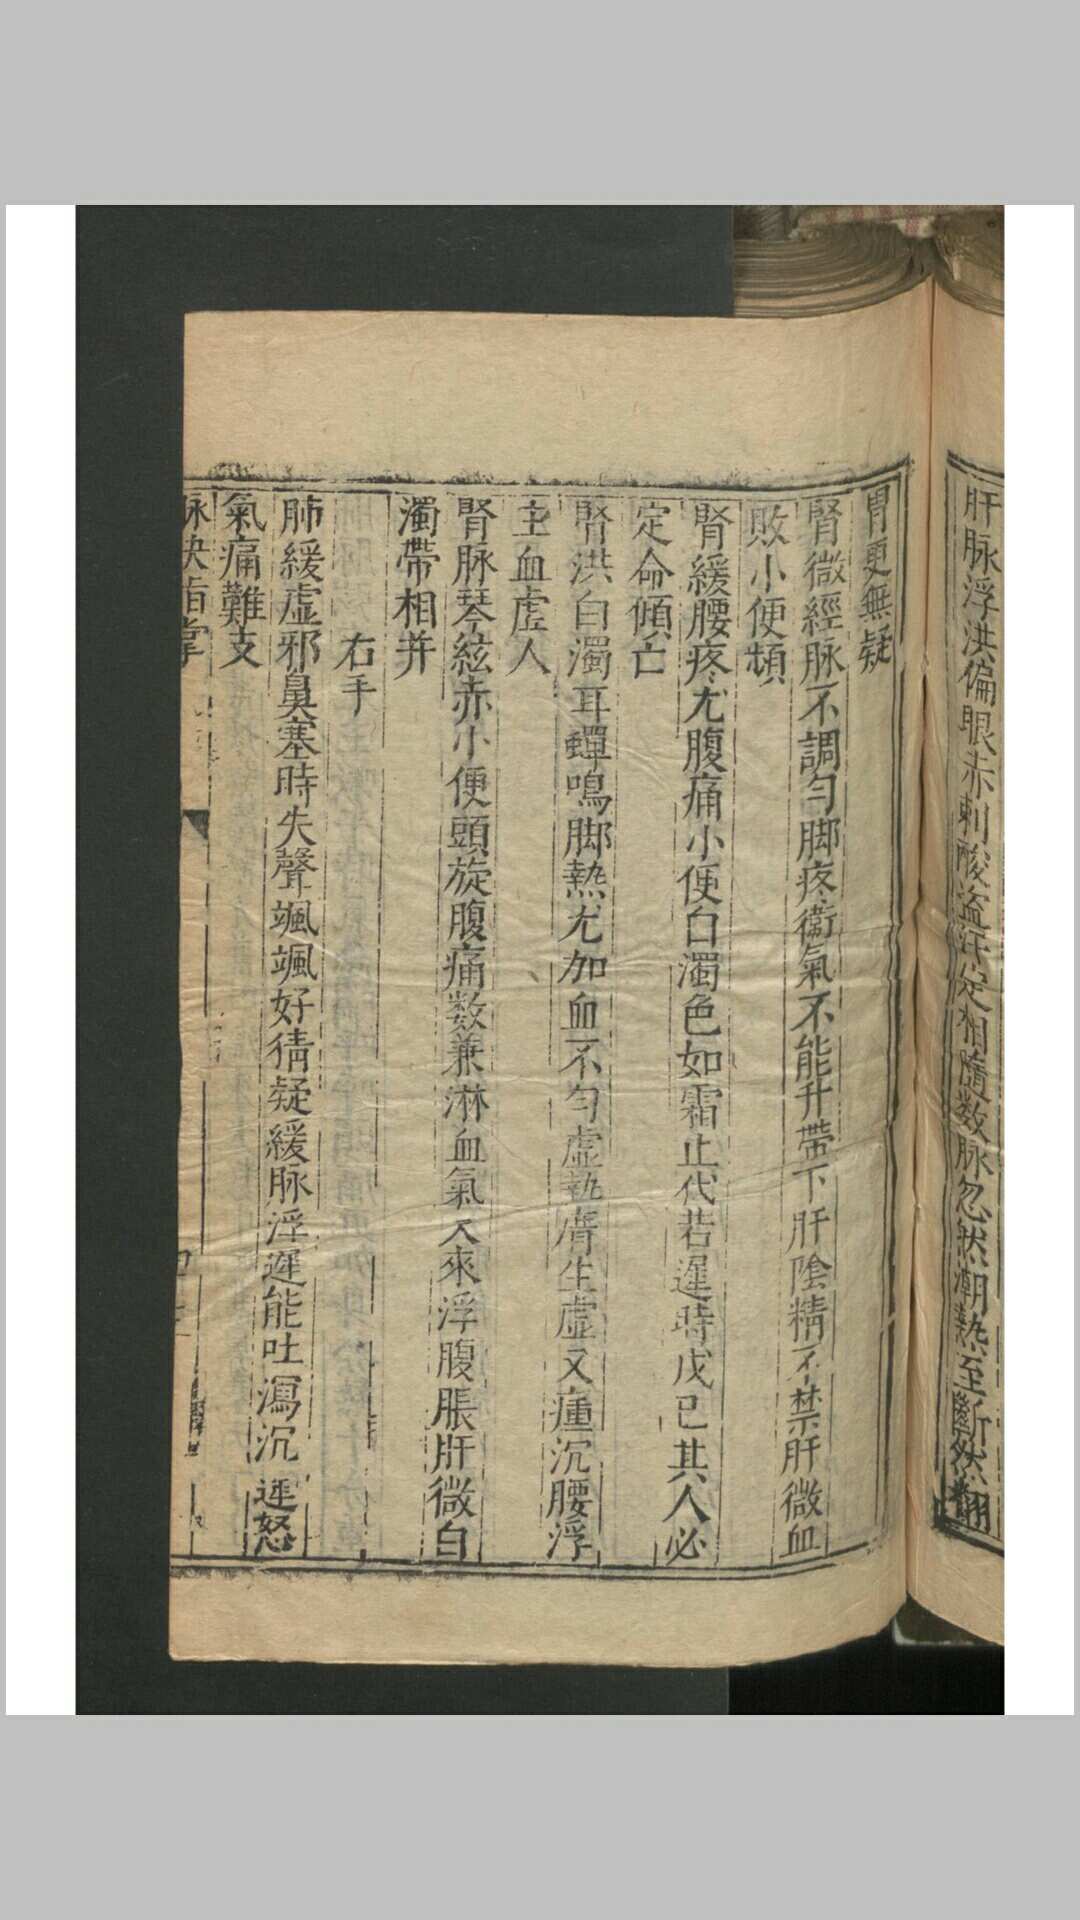 肝脉浮洪偏眼赤刺酸盗汗定相隨数脉忽然潮熱至斷然翻
胃更無疑
腎微經脉不調勻脚疼衛氣不能升帶下肝陰精不禁肝微血
敗小便頻
腎緩腰疼尤腹痛小便白濁色如霜止代若遲時戊已其人必
定命傾亡
腎洪白濁耳蟬鳴脚熱尤加血不勻虛熱瘡生虛又瘇沉腰浮
主血虛人
腎脉琴絃赤小便頭旋腹痛数兼淋血氣入來浮腹脹肝微白
濁帶相并
右手
肺緩虛邪鼻塞時失聲颯颯好猜疑緩脉浮遲能吐瀉沉遲怒
氣痛難支
脉訣指掌